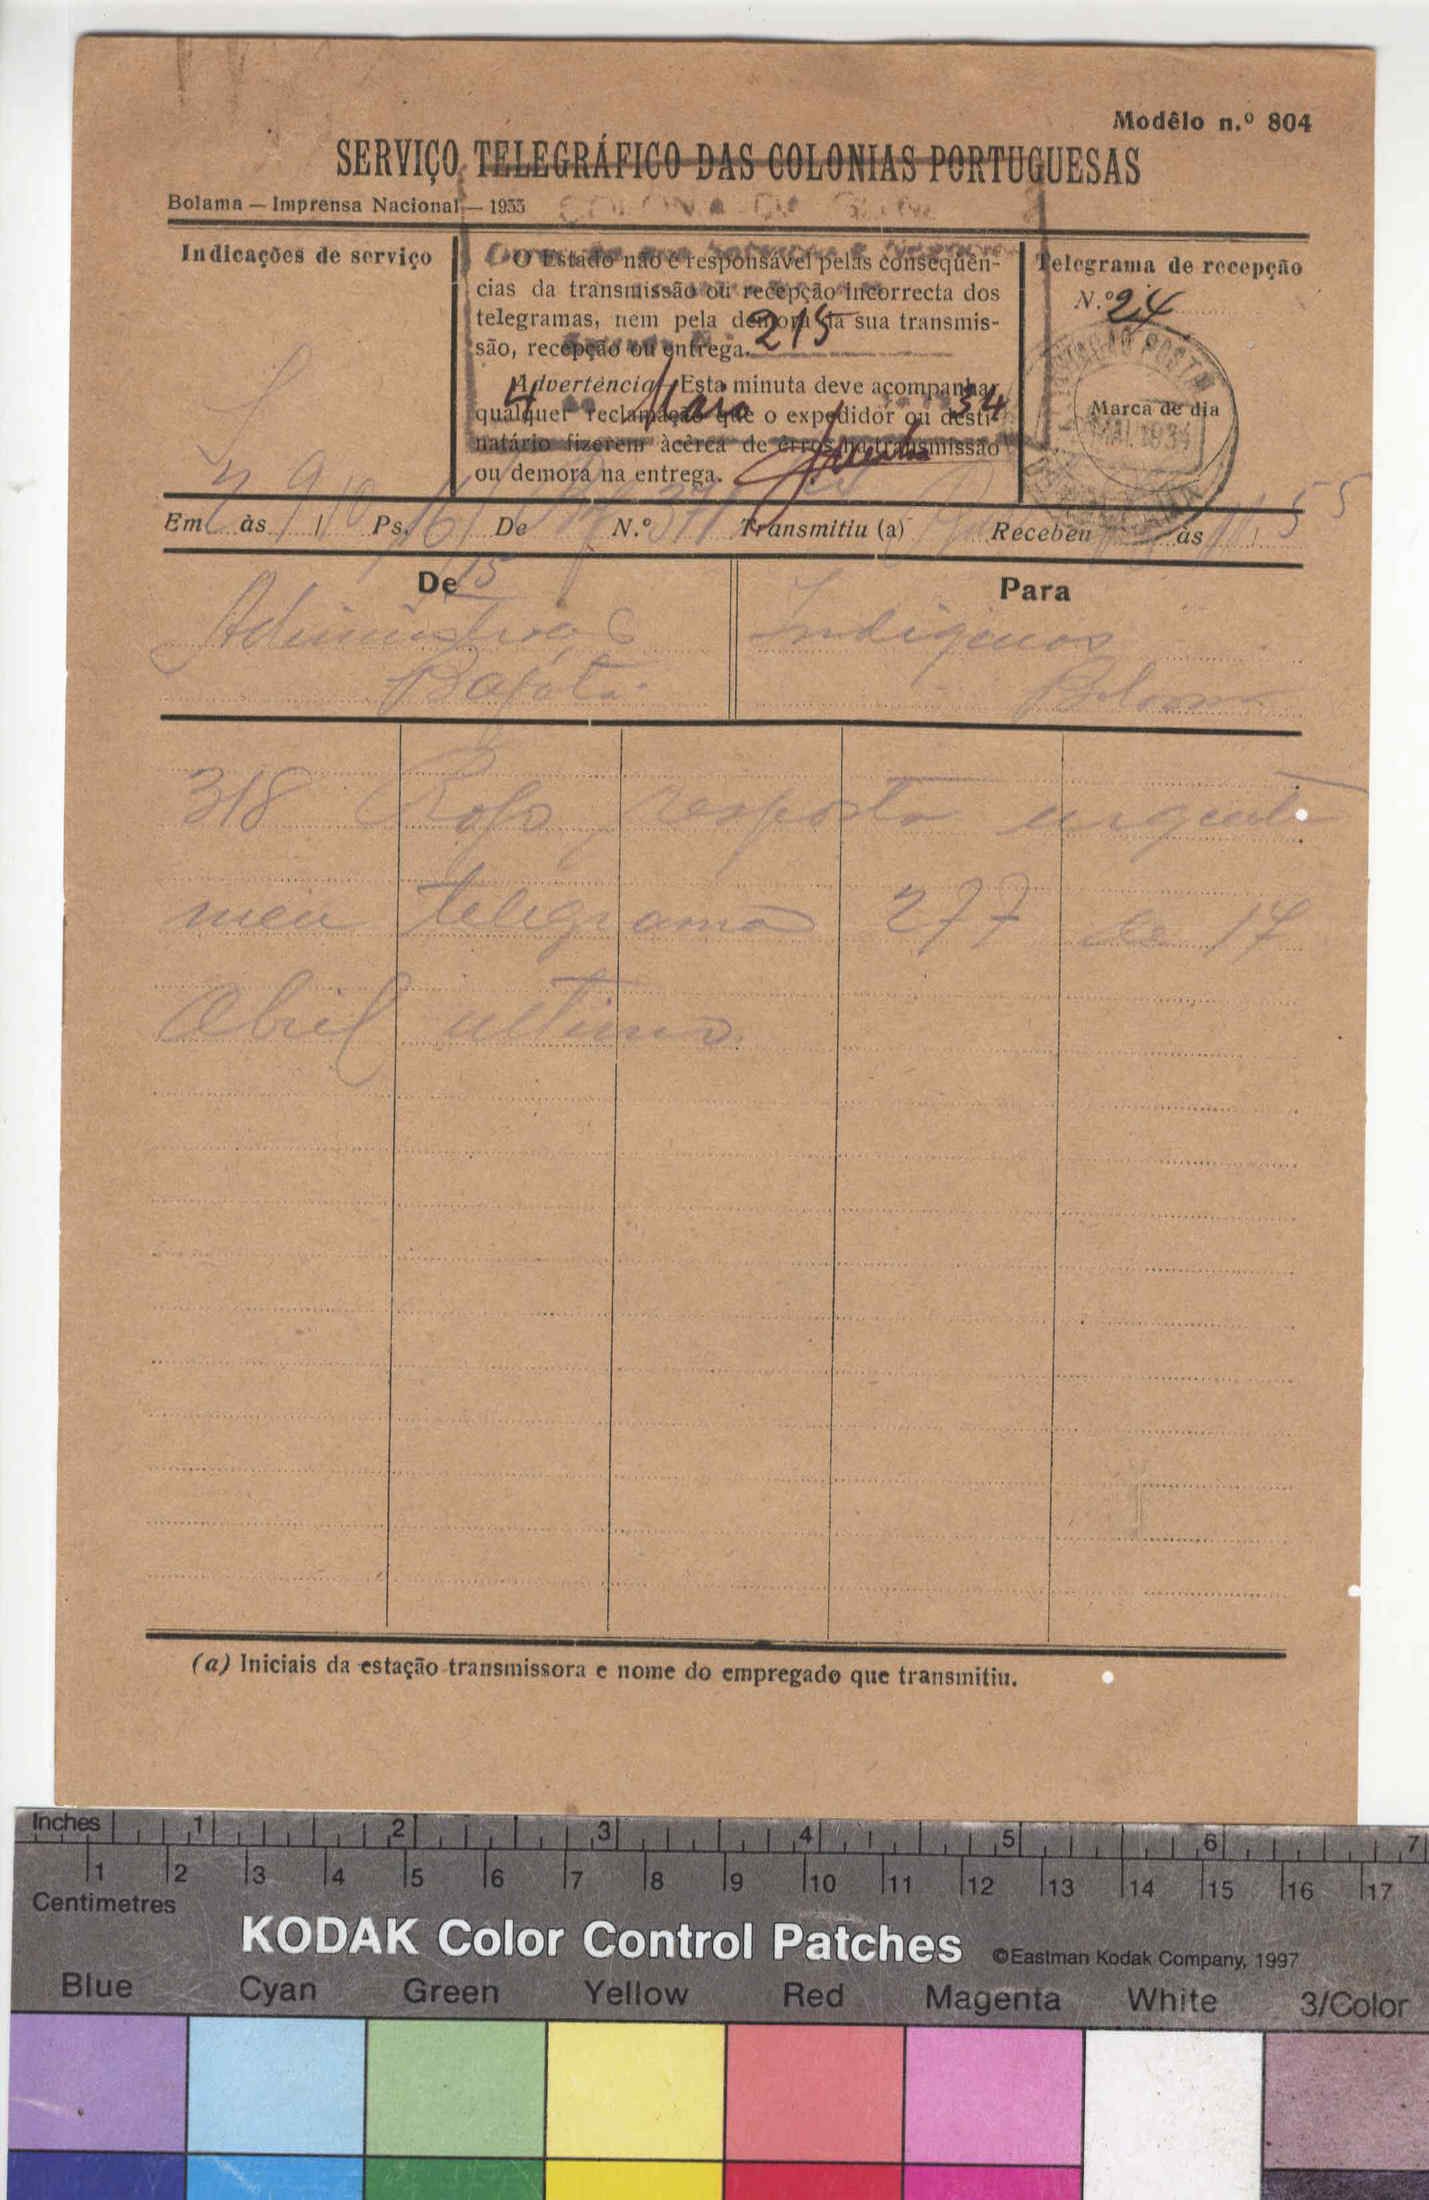 Modêlo n.º 804
SERVIÇO TELEGRÁFICO DAS COLONIAS PORTUGUESAS
Bolama — Imprensa Nacional — 1933
COLONIA DA GUINÉ
Indicações de serviço
O Estado não é responsável pelas consequên-
cias da transmissão ou recepção incorrecta dos
telegramas, nem pela demora da sua transmis-
são, recepção ou entrega.
215
Advertência—Esta minuta deve acompanhar
qualquer reclamação que o expedidor ou desti-
natário fizerem àcêrca de êrros na transmissão
ou demora na entrega.
4 Maio 34
Telegrama de recepção
N.º 24
Marca de dia
MAI. 1934
Em às Ps. De N.º Transmitiu (a) Recebeu às 55
De
Para
15
Administrador
Bafatá
Indigenas
Bolama
318 Rogo resposta urgente
meu telegrama 277 de 17
Abril ultimo.
(a) Iniciais da estação transmissora e nome do empregado que transmitiu.
Inches 1 2 3 4 5 6 7
1 2 3 4 5 6 7 8 9 10 11 12 13 14 15 16 17
Centimetres
KODAK Color Control Patches ©Eastman Kodak Company, 1997
Blue Cyan Green Yellow Red Magenta White 3/Color